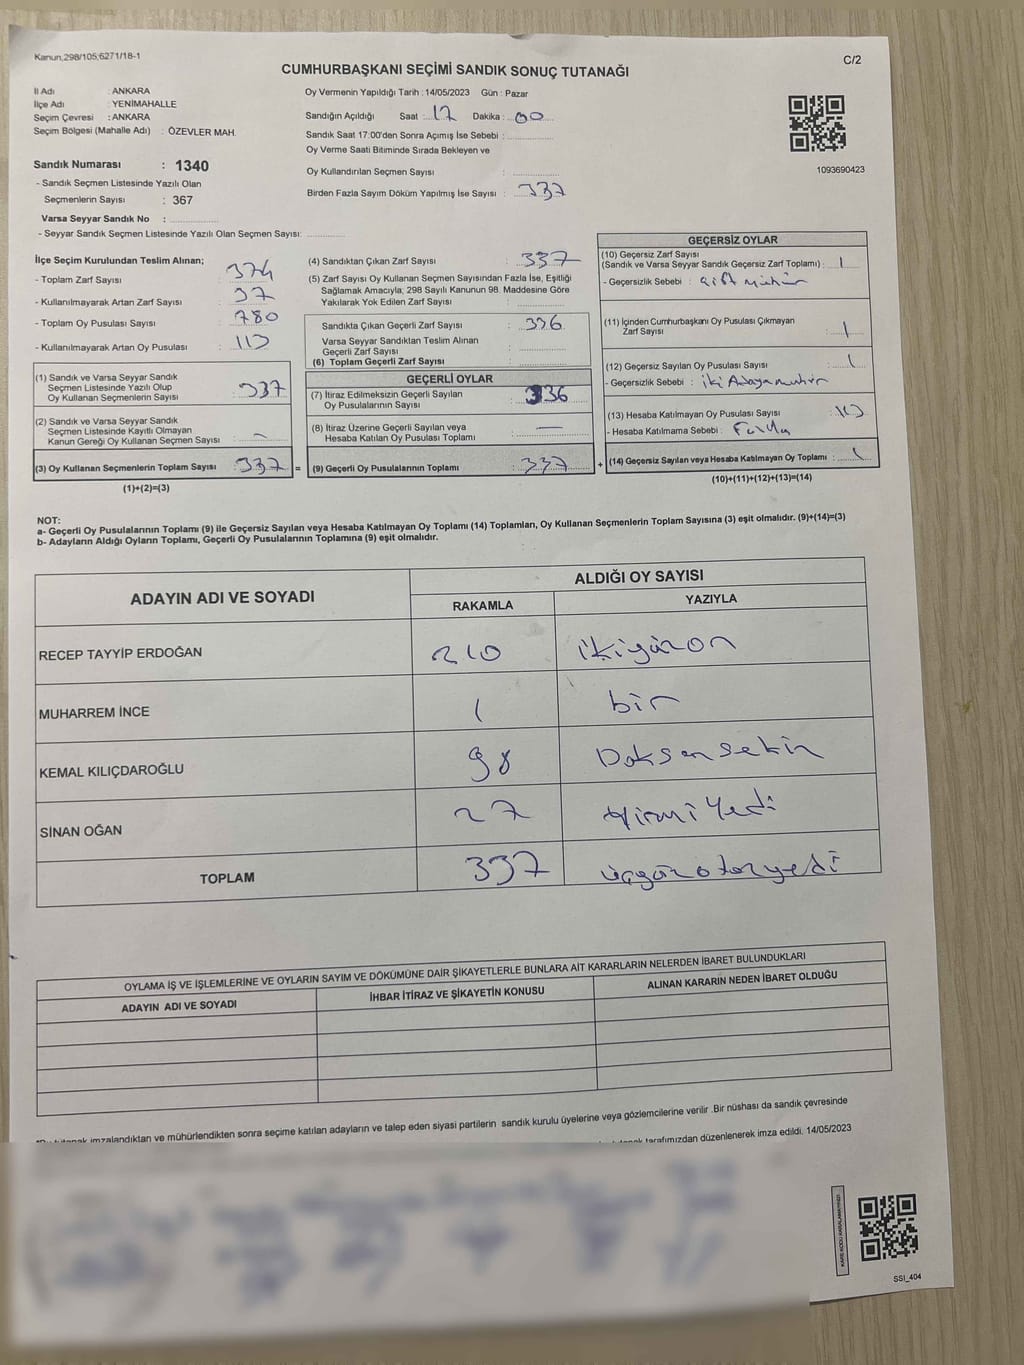 Kanun,298/105;6271/18-1
C/2
CUMHURBAŞKANI SEÇİMİ SANDIK SONUÇ TUTANAĞI
İl Adı : ANKARA
İlçe Adı : YENİMAHALLE
Seçim Çevresi : ANKARA
Seçim Bölgesi (Mahalle Adı) : ÖZEVLER MAH.
Sandık Numarası : 1340
- Sandık Seçmen Listesinde Yazılı Olan
Seçmenlerin Sayısı : 367
Varsa Seyyar Sandık No :
- Seyyar Sandık Seçmen Listesinde Yazılı Olan Seçmen Sayısı:
Oy Vermenin Yapıldığı Tarih : 14/05/2023 Gün : Pazar
Sandığın Açıldığı Saat : 17 Dakika : 00
Sandık Saat 17:00'den Sonra Açımış İse Sebebi :
Oy Verme Saati Bitiminde Sırada Bekleyen ve
Oy Kullandırılan Seçmen Sayısı :
Birden Fazla Sayım Döküm Yapılmış İse Sayısı : 337
1093690423
İlçe Seçim Kurulundan Teslim Alınan;
- Toplam Zarf Sayısı : 374
- Kullanılmayarak Artan Zarf Sayısı : 37
- Toplam Oy Pusulası Sayısı : 780
- Kullanılmayarak Artan Oy Pusulası : 113
(1) Sandık ve Varsa Seyyar Sandık
Seçmen Listesinde Yazılı Olup
Oy Kullanan Seçmenlerin Sayısı : 337
(2) Sandık ve Varsa Seyyar Sandık
Seçmen Listesinde Kayıtlı Olmayan
Kanun Gereği Oy Kullanan Seçmen Sayısı : -
(3) Oy Kullanan Seçmenlerin Toplam Sayısı : 337 =
(1)+(2)=(3)
(4) Sandıktan Çıkan Zarf Sayısı : 337
(5) Zarf Sayısı Oy Kullanan Seçmen Sayısından Fazla İse, Eşitliği
Sağlamak Amacıyla; 298 Sayılı Kanunun 98. Maddesine Göre
Yakılarak Yok Edilen Zarf Sayısı :
Sandıkta Çıkan Geçerli Zarf Sayısı : 336
Varsa Seyyar Sandıktan Teslim Alınan
Geçerli Zarf Sayısı :
(6) Toplam Geçerli Zarf Sayısı :
GEÇERLİ OYLAR
(7) İtiraz Edilmeksizin Geçerli Sayılan
Oy Pusulalarının Sayısı : 336
(8) İtiraz Üzerine Geçerli Sayılan veya
Hesaba Katılan Oy Pusulası Toplamı : —
(9) Geçerli Oy Pusulalarının Toplamı : 337 +
GEÇERSİZ OYLAR
(10) Geçersiz Zarf Sayısı
(Sandık ve Varsa Seyyar Sandık Geçersiz Zarf Toplamı) : 1
- Geçersizlik Sebebi : çift mühür
(11) İçinden Cumhurbaşkanı Oy Pusulası Çıkmayan
Zarf Sayısı : 1
(12) Geçersiz Sayılan Oy Pusulası Sayısı : 1
- Geçersizlik Sebebi : iki Adaya mühür
(13) Hesaba Katılmayan Oy Pusulası Sayısı : 113
- Hesaba Katılmama Sebebi : Fazla
(14) Geçersiz Sayılan veya Hesaba Katılmayan Oy Toplamı : 1
(10)+(11)+(12)+(13)=(14)
NOT:
a- Geçerli Oy Pusulalarının Toplamı (9) ile Geçersiz Sayılan veya Hesaba Katılmayan Oy Toplamı (14) Toplamları, Oy Kullanan Seçmenlerin Toplam Sayısına (3) eşit olmalıdır. (9)+(14)=(3)
b- Adayların Aldığı Oyların Toplamı, Geçerli Oy Pusulalarının Toplamına (9) eşit olmalıdır.
ADAYIN ADI VE SOYADI
ALDIĞI OY SAYISI
RAKAMLA YAZIYLA
RECEP TAYYİP ERDOĞAN 210 ikiyüzon
MUHARREM İNCE 1 bir
KEMAL KILIÇDAROĞLU 98 Doksansekiz
SİNAN OĞAN 27 yirmi Yedi
TOPLAM 337 üçyüzotuzyedi
OYLAMA İŞ VE İŞLEMLERİNE VE OYLARIN SAYIM VE DÖKÜMÜNE DAİR ŞİKAYETLERLE BUNLARA AİT KARARLARIN NELERDEN İBARET BULUNDUKLARI
ADAYIN ADI VE SOYADI İHBAR İTİRAZ VE ŞİKAYETİN KONUSU ALINAN KARARIN NEDEN İBARET OLDUĞU
imzalandıktan ve mühürlendikten sonra seçime katılan adayların ve talep eden siyasi partilerin sandık kurulu üyelerine veya gözlemcilerine verilir .Bir nüshası da sandık çevresinde
tarafımızdan düzenlenerek imza edildi. 14/05/2023
SSI_404